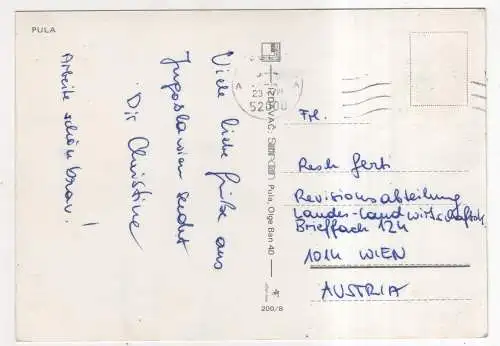 PULA
Viele liebe Grüße aus
Jugoslawien sendet
Dir Christine
Arbeite schön brav!
A A
52000
IZDAVAČ: Pula, Olge Ban 40
200/8
Frl.
Resh Gerti
Revisionsabteilung
Landes-Landwirtschaftsk.
Brieffach 124
1014 WIEN
AUSTRIA